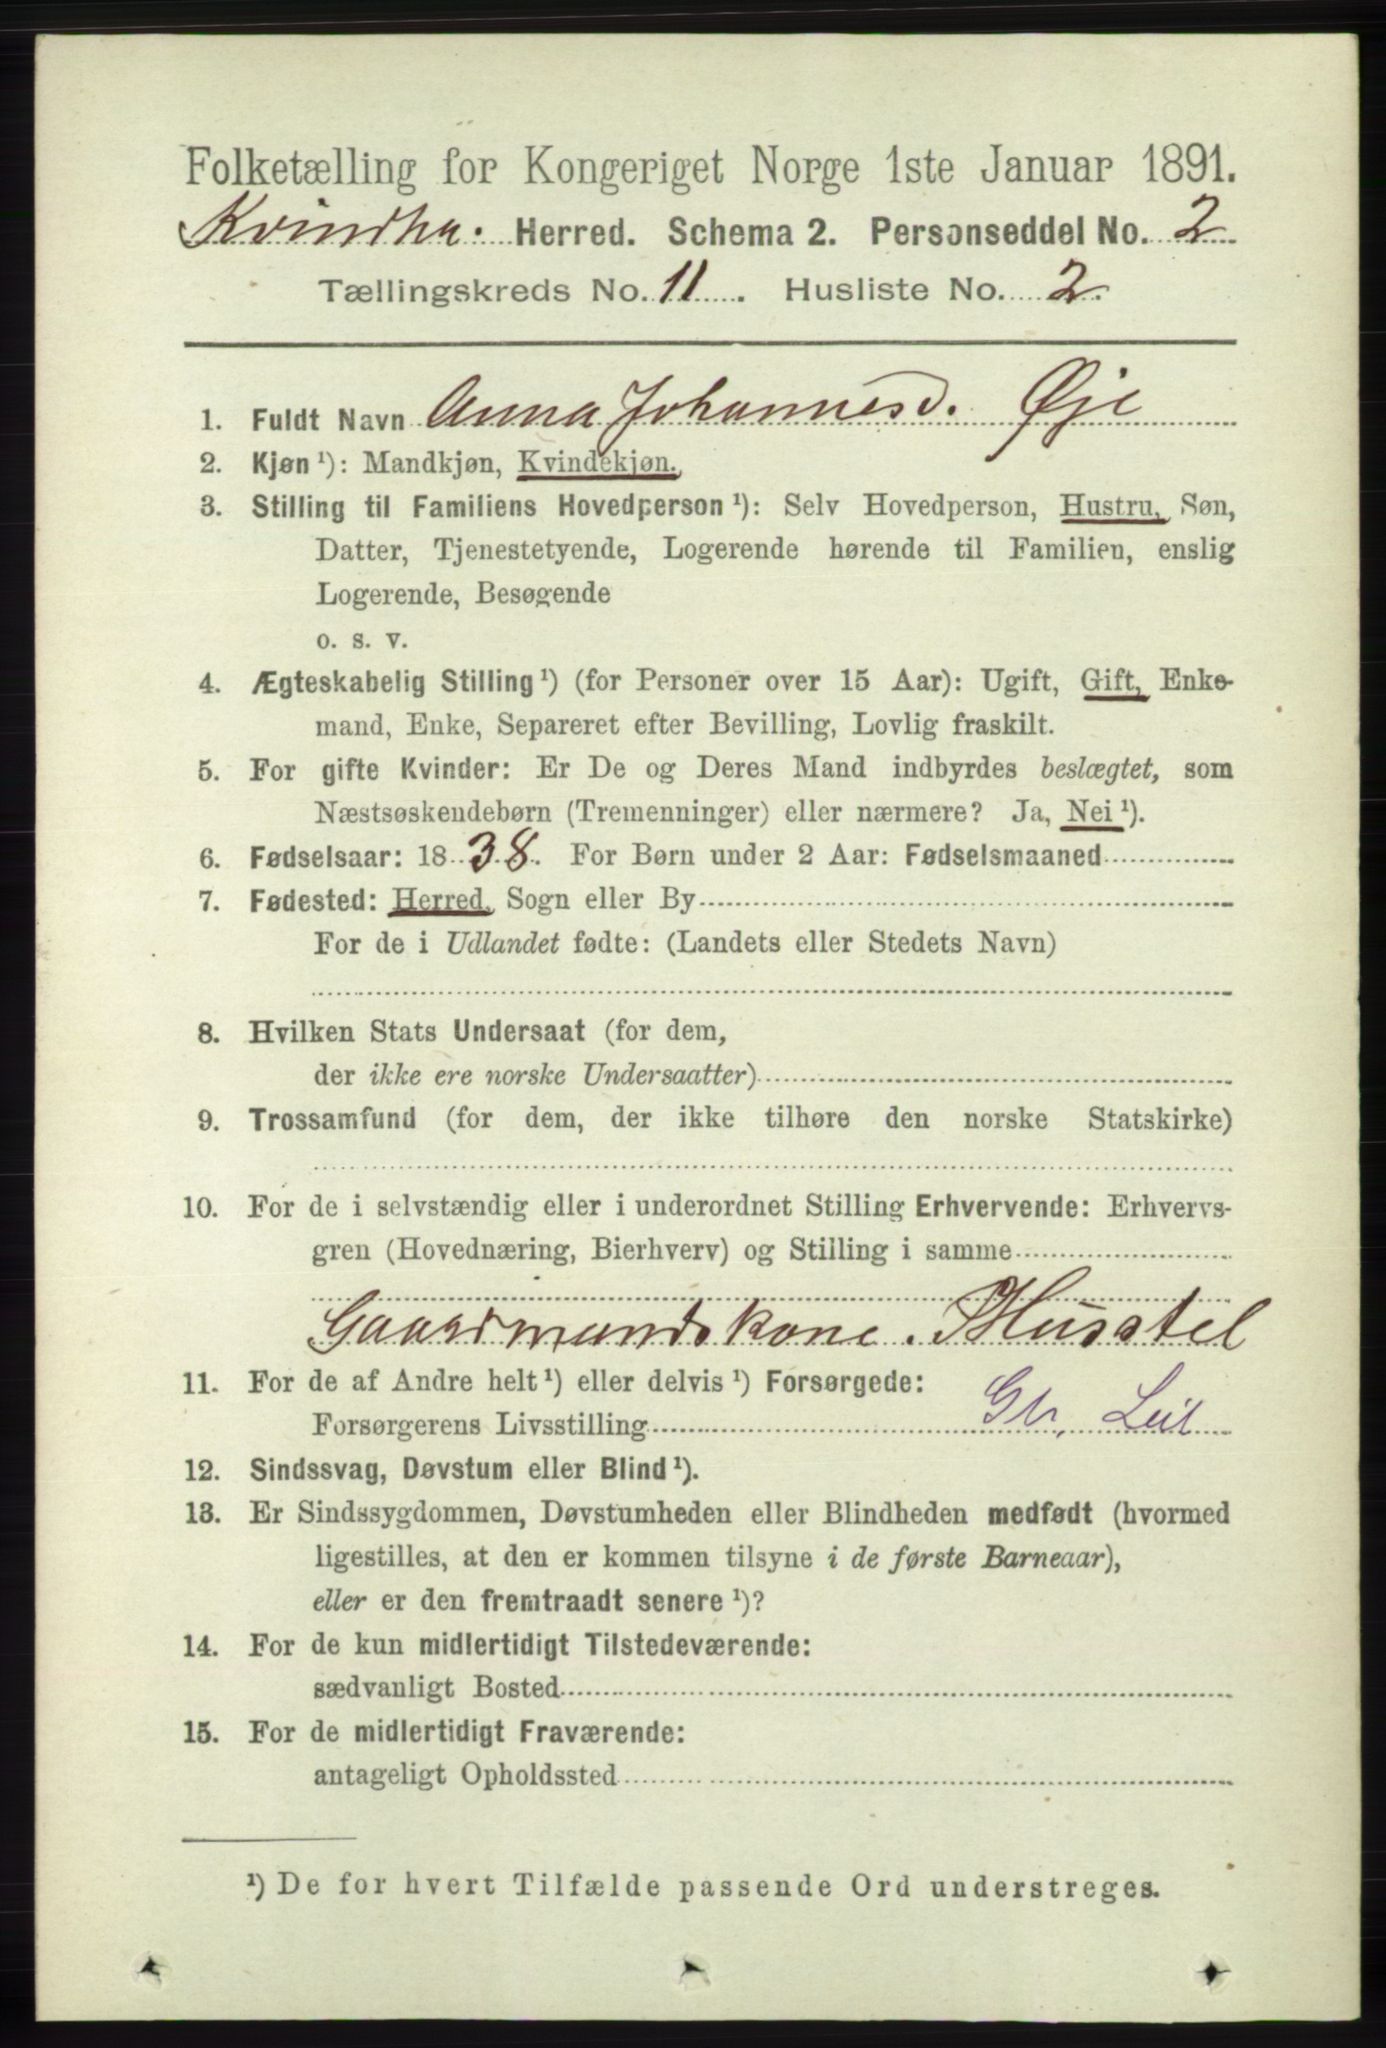 Folketælling for Kongeriget Norge 1ste Januar 1891.
Kvindhr. Herred. Schema 2. Personseddel No. 2
Tællingskreds No. 11. Husliste No. 2.
1. Fuldt Navn Anna Johannesd. Øje
2. Kjøn ¹): Mandkjøn, Kvindekjøn.
3. Stilling til Familiens Hovedperson ¹): Selv Hovedperson, Hustru, Søn,
Datter, Tjenestetyende, Logerende hørende til Familien, enslig
Logerende, Besøgende
o. s. v.
4. Ægteskabelig Stilling ¹) (for Personer over 15 Aar): Ugift, Gift, Enke-
mand, Enke, Separeret efter Bevilling, Lovlig fraskilt.
5. For gifte Kvinder: Er De og Deres Mand indbyrdes beslægtet, som
Næstsøskendebørn (Tremenninger) eller nærmere? Ja, Nei ¹).
6. Fødselsaar: 1838. For Børn under 2 Aar: Fødselsmaaned
7. Fødested: Herred, Sogn eller By
For de i Udlandet fødte: (Landets eller Stedets Navn)
8. Hvilken Stats Undersaat (for dem,
der ikke ere norske Undersaatter)
9. Trossamfund (for dem, der ikke tilhøre den norske Statskirke)
10. For de i selvstændig eller i underordnet Stilling Erhvervende: Erhvervs-
gren (Hovednæring, Bierhverv) og Stilling i samme
Gaardmandskone. Husstel
11. For de af Andre helt ¹) eller delvis ¹) Forsørgede:
Forsørgerens Livsstilling Gbr. Leil
12. Sindssvag, Døvstum eller Blind ¹).
13. Er Sindssygdommen, Døvstumheden eller Blindheden medfødt (hvormed
ligestilles, at den er kommen tilsyne i de første Barneaar),
eller er den fremtraadt senere ¹)?
14. For de kun midlertidigt Tilstedeværende:
sædvanligt Bosted
15. For de midlertidigt Fraværende:
antageligt Opholdssted
¹) De for hvert Tilfælde passende Ord understreges.